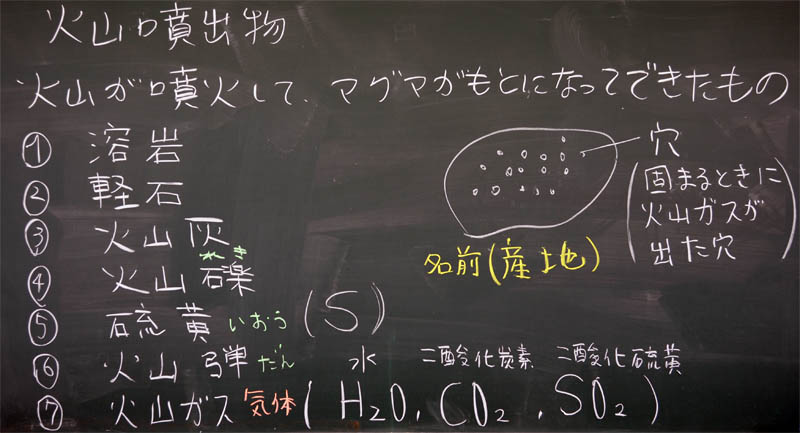 火山噴出物
火山が噴火して、マグマがもとになってできたもの
① 溶岩
② 軽石
③ 火山灰
れき
④ 火山礫
⑤ 硫黄 いおう (S)
⑥ 火山弾 だん
水 二酸化炭素 二酸化硫黄
⑦ 火山ガス 気体 (H₂O, CO₂, SO₂)
穴
(固まるときに
火山ガスが
出た穴)
名前(産地)